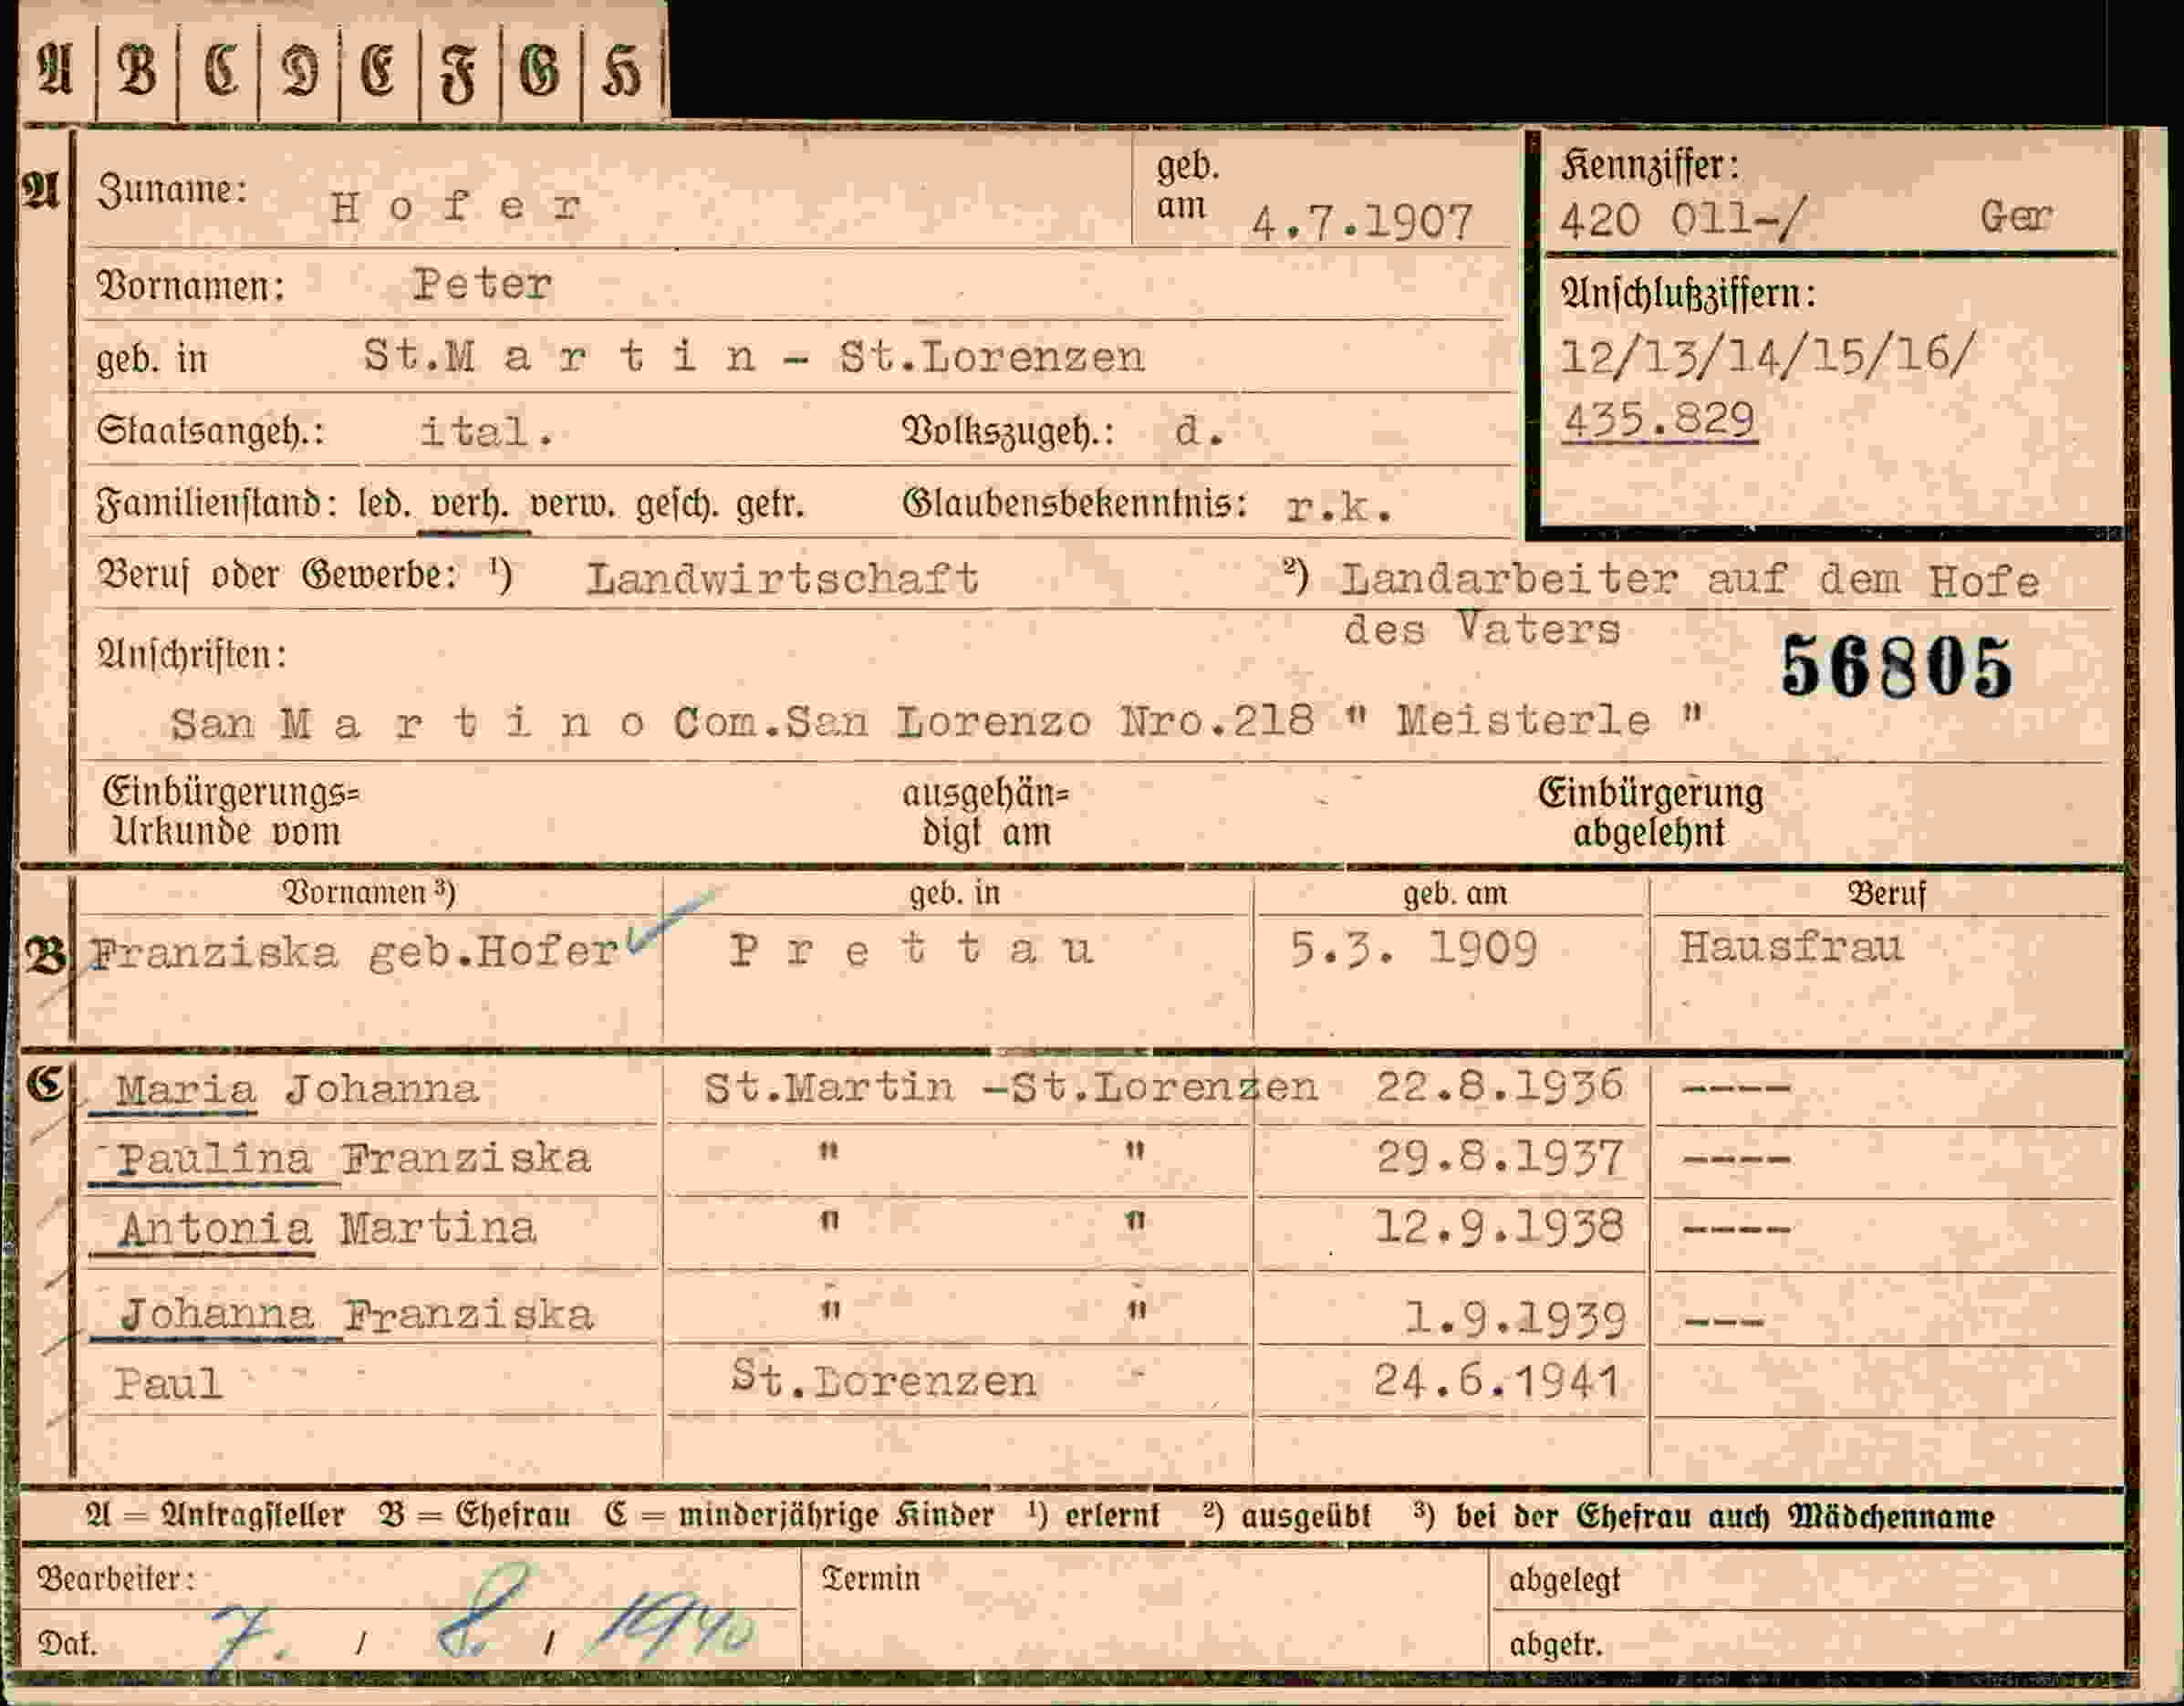 A B C D E F G H
A Zuname: Hofer geb. am 4.7.1907
Kennziffer:
420 011-/ Ger
Vornamen: Peter
Anschlußziffern:
12/13/14/15/16/
435.829
geb. in St.Martin - St.Lorenzen
Staatsangeh.: ital. Volkszugeh.: d.
Familienstand: led. verh. verw. gesch. getr. Glaubensbekenntnis: r.k.
Beruf oder Gewerbe: ¹) Landwirtschaft ²) Landarbeiter auf dem Hofe
des Vaters
Anschriften: 56805
San Martino Com.San Lorenzo Nro.218 " Meisterle "
Einbürgerungs= ausgehän= Einbürgerung
Urkunde vom digt am abgelehnt
Vornamen ³) geb. in geb. am Beruf
B Franziska geb.Hofer Prettau 5.3. 1909 Hausfrau
C Maria Johanna St.Martin -St.Lorenzen 22.8.1936 ----
Paulina Franziska " " 29.8.1937 ----
Antonia Martina " " 12.9.1938 ----
Johanna Franziska " " 1.9.1939 ---
Paul St.Lorenzen 24.6.1941
A = Antragsteller B = Ehefrau C = minderjährige Kinder ¹) erlernt ²) ausgeübt ³) bei der Ehefrau auch Mädchenname
Bearbeiter: Termin abgelegt
Dat. 7. / 8. / 1940 abgetr.